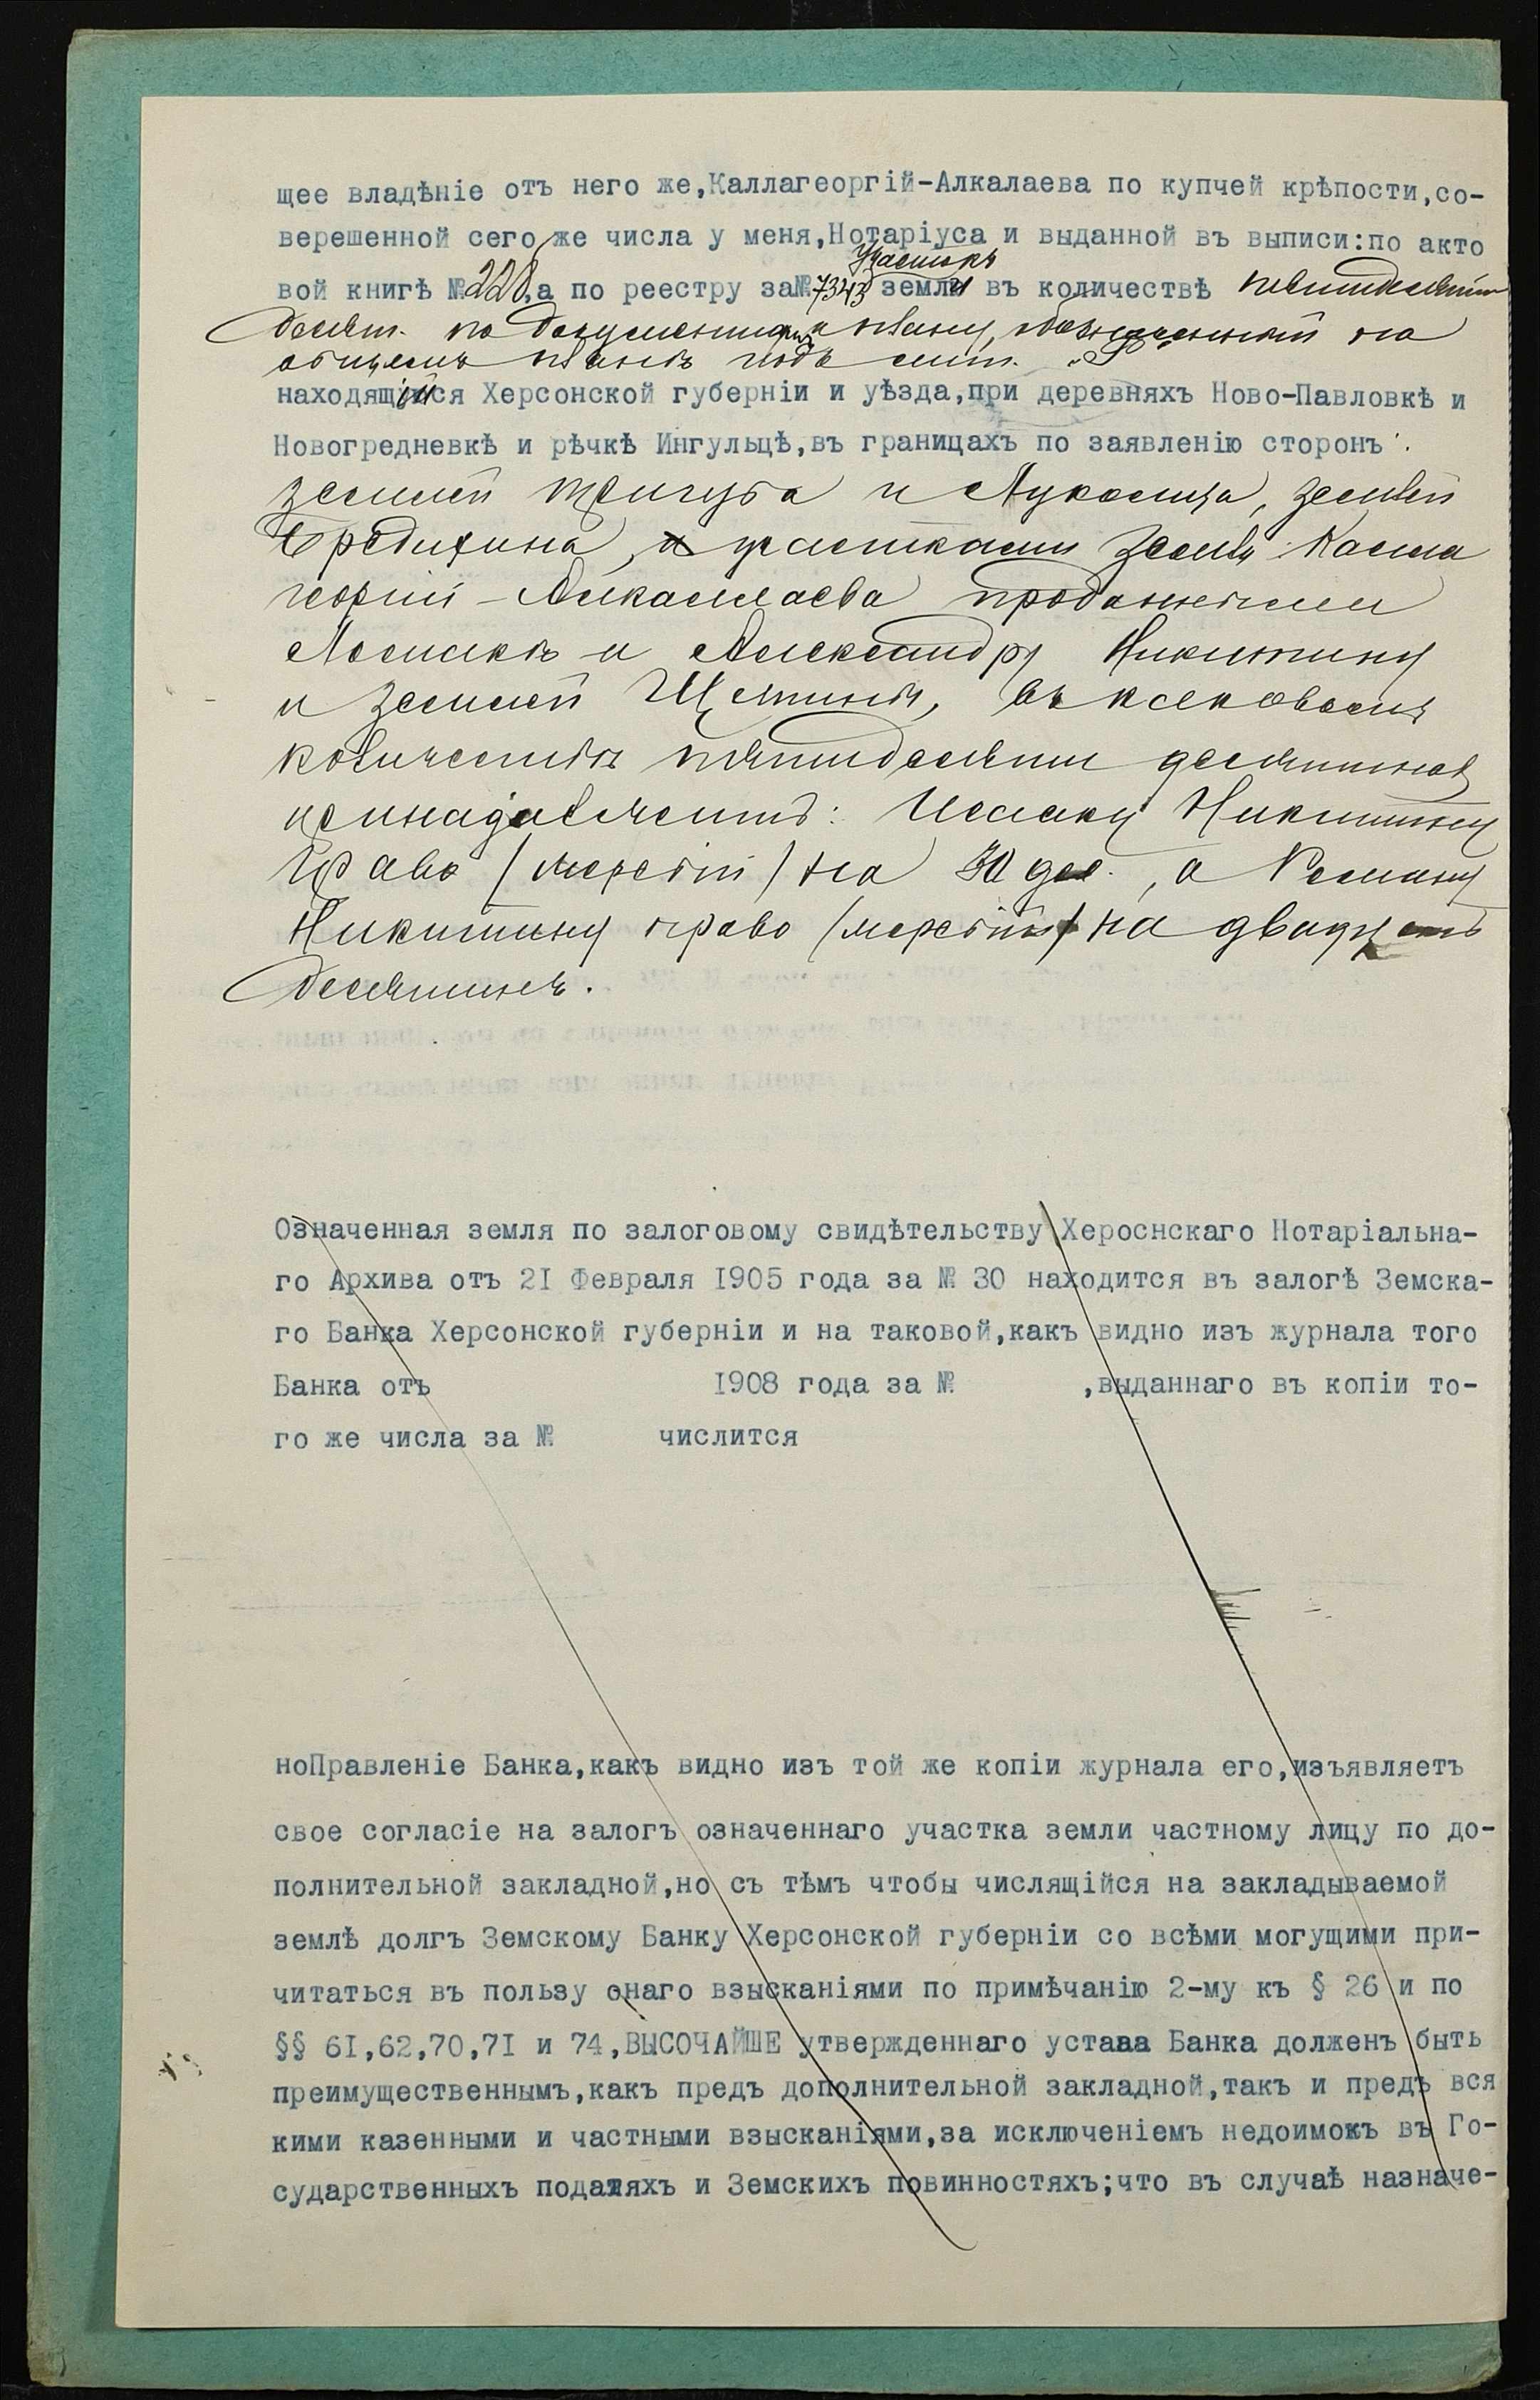 щее владѣніе отъ него же,Каллагеоргій-Алкалаева по купчей крѣпости,со-
верешенной сего же числа у меня,Нотаріуса и выданной въ выписи:по акто
участокъ
вой книгѣ №220,а по реестру за№7343 земли въ количествѣ пятидесяти
десят. по документамъ и плану, обозначенный на
общемъ планѣ подъ лит.
находящійся Херсонской губерніи и уѣзда,при деревняхъ Ново-Павловкѣ и
Новогредневкѣ и рѣчкѣ Ингульцѣ,въ границахъ по заявленію сторонъ:
землей Тригуба и Лукосица, землей
Бредихина, участками земли Калла
георгій-Алкалаева проданными
и Александру Никитину
и землей въ каковомъ
количествѣ пятидесяти десятинъ
принадлежитъ: Исааку Никитину
право (мерсій) на 30 дес., а Роману
Никитину право (мерсій) на двадцать
десятинъ.
Означенная земля по залоговому свидѣтельству Хероснскаго Нотаріальна-
го Архива отъ 2I Февраля I905 года за № 30 находится въ залогѣ Земска-
го Банка Херсонской губерніи и на таковой,какъ видно изъ журнала того
Банка отъ I908 года за № ,выданнаго въ копіи то-
го же числа за № числится
ноПравленіе Банка,какъ видно изъ той же копіи журнала его,изъявляетъ
свое согласіе на залогъ означеннаго участка земли частному лицу по до-
полнительной закладной,но съ тѣмъ чтобы числящійся на закладываемой
землѣ долгъ Земскому Банку Херсонской губерніи со всѣми могущими при-
читаться въ пользу онаго взысканіями по примѣчанію 2-му къ § 26 и по
§§ 6I,62,70,7I и 74,ВЫСОЧАЙШЕ утвержденнаго устава Банка долженъ быть
преимущественнымъ,какъ предъ дополнительной закладной,такъ и предъ вся
кими казенными и частными взысканіями,за исключеніемъ недоимокъ въ Го-
сударственныхъ податяхъ и Земскихъ повинностяхъ;что въ случаѣ назначе-